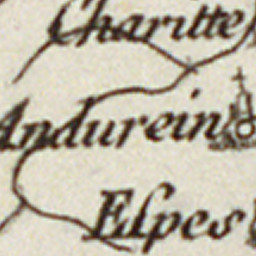 Charitte
Andurein
Eſpes